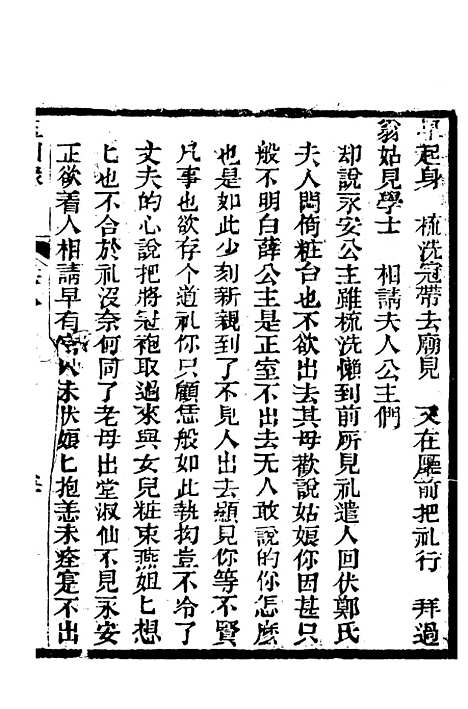 早起身　梳洗冠帶去廟見　又在廳前把礼行　拜過
翁姑見學士　相請夫人公主們
却說永安公主雖梳洗懶到前所見礼遣人回伏鄭氏
夫人悶倚粧台也不欲出去其母歡說姑娘你因甚只
般不明白薛公主是正室不出去无人敢說的你怎麽
也是如此少刻新親到了不見人出去顯見你等不賢
凡事也欲存个道礼你只顧恁般如此執拘豈不冷了
丈夫的心說把將冠袍取過來與女兒粧束燕姐匕想
匕也不合於礼沒奈何同了老母出堂淑仙不見永安
正欲着人相請早有宫人未伏娘匕抱恙未痊寔不出